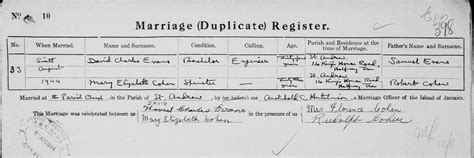 No. 10
Marriage (Duplicate) Register.
398
No. When Married. Name and Surname. Condition. Calling. Age. Parish and Residence at the time of Marriage. Father's Name and Surname.
33 Sixth August David Charles Evans Bachelor Engineer St. Andrew, 14 King's House Road, Half Way Tree Samuel Evans
Mary Elizabeth Cohen Spinster St. Andrew 14 King's House Road, Half Way Tree Robert Cohen
Married at the Parish Church in the Parish of St. Andrew by (or before) me Archibald C. Hutchison, a Marriage Officer of the Island of Jamaica.
This marriage was celebrated between us David Charles Evans Mary Elizabeth Cohen in the presence of us Mrs Florence Cohen Rudolph Cohen